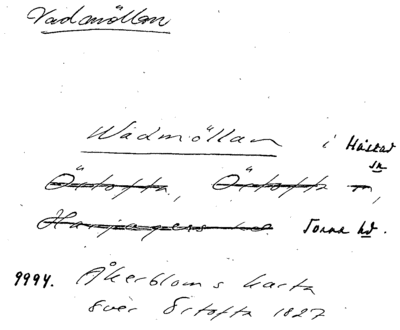 Vadmöllan
Wadmöllan i Håstad
sn
Örtofta, Örtofta -,
Harjagers hd. Torna hd.
9994. Åkerbloms karta
över Örtofta 1827